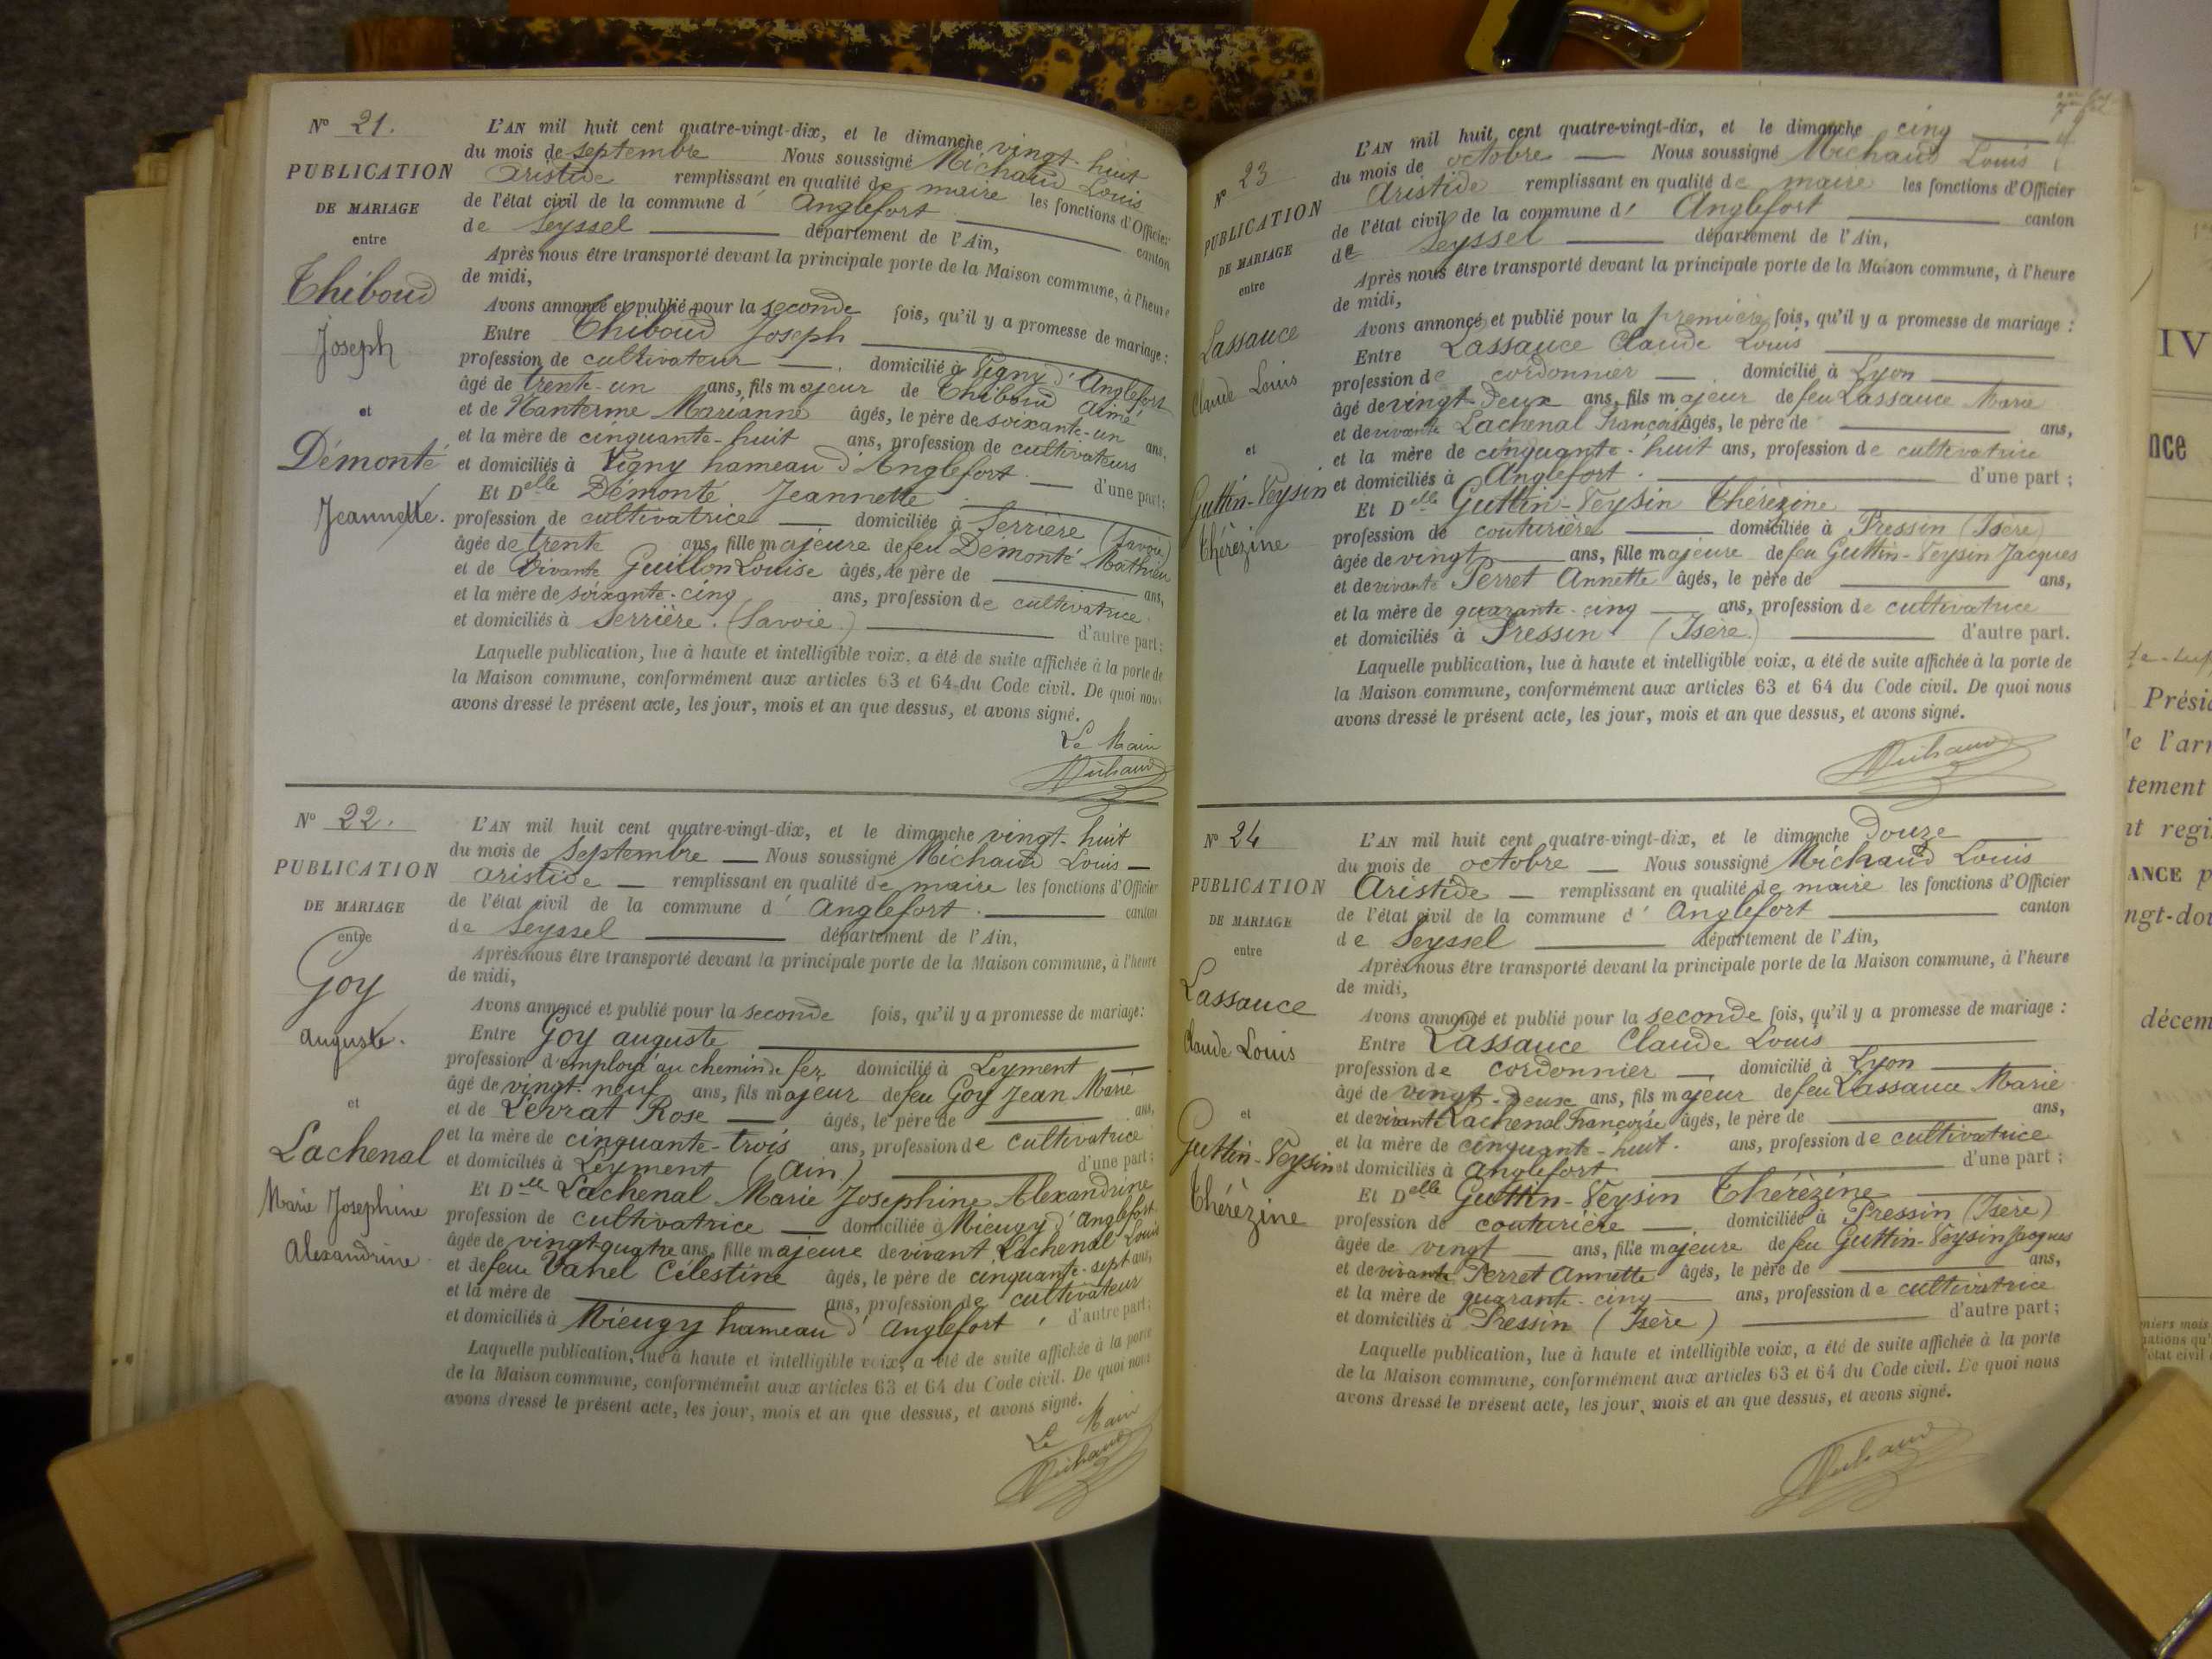 N° 21.
PUBLICATION
DE MARIAGE
entre
Thiboud
Joseph
et
Démonté
Jeannette.
L'AN mil huit cent quatre-vingt-dix, et le dimanche vingt-huit
du mois de septembre Nous soussigné Michaud Louis
Aristide remplissant en qualité de maire les fonctions d'Officier
de l'état civil de la commune d' Anglefort canton
de Seyssel département de l'Ain,
Après nous être transporté devant la principale porte de la Maison commune, à l'heure
de midi,
Avons annoncé et publié pour la seconde fois, qu'il y a promesse de mariage :
Entre Thiboud Joseph
profession de cultivateur domicilié à Vigny d'Anglefort
âgé de trente-un ans, fils majeur de Thiboud Aimé
et de Nanterme Marianne âgés, le père de soixante-un ans,
et la mère de cinquante-huit ans, profession de cultivateurs
et domiciliés à Vigny hameau d'Anglefort. d'une part;
Et Delle Démonté Jeannette
profession de cultivatrice domiciliée à Serrière (Savoie)
âgée de trente ans, fille majeure de feu Démonté Mathieu
et de vivante Guillon Louise âgés, le père de ans,
et la mère de soixante-cinq ans, profession de cultivatrice
et domiciliés à Serrière. (Savoie) d'autre part;
Laquelle publication, lue à haute et intelligible voix, a été de suite affichée à la porte de
la Maison commune, conformément aux articles 63 et 64 du Code civil. De quoi nous
avons dressé le présent acte, les jour, mois et an que dessus, et avons signé.
Le Maire
Michaud
N° 22.
PUBLICATION
DE MARIAGE
entre
Goy
auguste.
et
Lachenal
Marie Josephine
Alexandrine
L'AN mil huit cent quatre-vingt-dix, et le dimanche vingt-huit
du mois de Septembre Nous soussigné Michaud Louis
aristide remplissant en qualité de maire les fonctions d'Officier
de l'état civil de la commune d' Anglefort. canton
de Seyssel département de l'Ain,
Après nous être transporté devant la principale porte de la Maison commune, à l'heure
de midi,
Avons annoncé et publié pour la seconde fois, qu'il y a promesse de mariage:
Entre Goy auguste
profession d'employé au chemin de fer domicilié à Leyment
âgé de vingt-neuf ans, fils majeur de feu Goy Jean Marie
et de Levrat Rose âgés, le père de ans,
et la mère de cinquante-trois ans, profession de cultivatrice
et domiciliés à Leyment (Ain) d'une part;
Et Delle Lachenal Marie Josephine Alexandrine
profession de cultivatrice domiciliée à Mieugy d'Anglefort
âgée de vingt-quatre ans, fille majeure de vivant Lachenal Louis
et de feue Vanel Célestine âgés, le père de cinquante-sept ans,
et la mère de ans, profession de cultivateur
et domiciliés à Mieugy hameau d'Anglefort, d'autre part;
Laquelle publication, lue à haute et intelligible voix, a été de suite affichée à la porte
de la Maison commune, conformément aux articles 63 et 64 du Code civil. De quoi nous
avons dressé le présent acte, les jour, mois et an que dessus, et avons signé.
Le Maire
Michaud
N° 23
PUBLICATION
DE MARIAGE
entre
Lassauce
Claude Louis
et
Guttin-Veysin
Thérèzine
L'AN mil huit cent quatre-vingt-dix, et le dimanche cinq
du mois de octobre Nous soussigné Michaud Louis
Aristide remplissant en qualité de maire les fonctions d'Officier
de l'état civil de la commune d' Anglefort canton
de Seyssel département de l'Ain,
Après nous être transporté devant la principale porte de la Maison commune, à l'heure
de midi,
Avons annoncé et publié pour la première fois, qu'il y a promesse de mariage :
Entre Lassauce Claude Louis
profession de cordonnier domicilié à Lyon
âgé de vingt-deux ans, fils majeur de feu Lassauce Marie
et de vivante Lachenal Françoise âgés, le père de ans,
et la mère de cinquante-huit ans, profession de cultivatrice
et domiciliés à Anglefort. d'une part ;
Et Delle Guttin-Veysin Thérèzine
profession de couturière domiciliée à Pressin (Isère)
âgée de vingt ans, fille majeure de feu Guttin-Veysin Jacques
et de vivante Perret Annette âgés, le père de ans,
et la mère de quarante-cinq ans, profession de cultivatrice
et domiciliés à Pressin (Isère) d'autre part.
Laquelle publication, lue à haute et intelligible voix, a été de suite affichée à la porte de
la Maison commune, conformément aux articles 63 et 64 du Code civil. De quoi nous
avons dressé le présent acte, les jour, mois et an que dessus, et avons signé.
Michaud
N° 24
PUBLICATION
DE MARIAGE
entre
Lassauce
Claude Louis
et
Guttin-Veysin
Thérèzine
L'AN mil huit cent quatre-vingt-dix, et le dimanche douze
du mois de octobre Nous soussigné Michaud Louis
Aristide remplissant en qualité de maire les fonctions d'Officier
de l'état civil de la commune d' Anglefort canton
de Seyssel département de l'Ain,
Après nous être transporté devant la principale porte de la Maison commune, à l'heure
de midi,
Avons annoncé et publié pour la seconde fois, qu'il y a promesse de mariage :
Entre Lassauce Claude Louis
profession de cordonnier domicilié à Lyon
âgé de vingt-deux ans, fils majeur de feu Lassauce Marie
et de vivante Lachenal Françoise âgés, le père de ans,
et la mère de cinquante-huit. ans, profession de cultivatrice
et domiciliés à Anglefort d'une part ;
Et Delle Guttin-Veysin Thérèzine
profession de couturière domiciliée à Pressin (Isère)
âgée de vingt ans, fille majeure de feu Guttin-Veysin Jacques
et de vivante Perret Annette âgés, le père de ans,
et la mère de quarante-cinq ans, profession de cultivatrice
et domiciliés à Pressin (Isère) d'autre part ;
Laquelle publication, lue à haute et intelligible voix, a été de suite affichée à la porte
de la Maison commune, conformément aux articles 63 et 64 du Code civil. De quoi nous
avons dressé le présent acte, les jour, mois et an que dessus, et avons signé.
Michaud
IV
nce
Présid
e l'arr
tement
nt regi
ANCE p
ngt-dou
décem